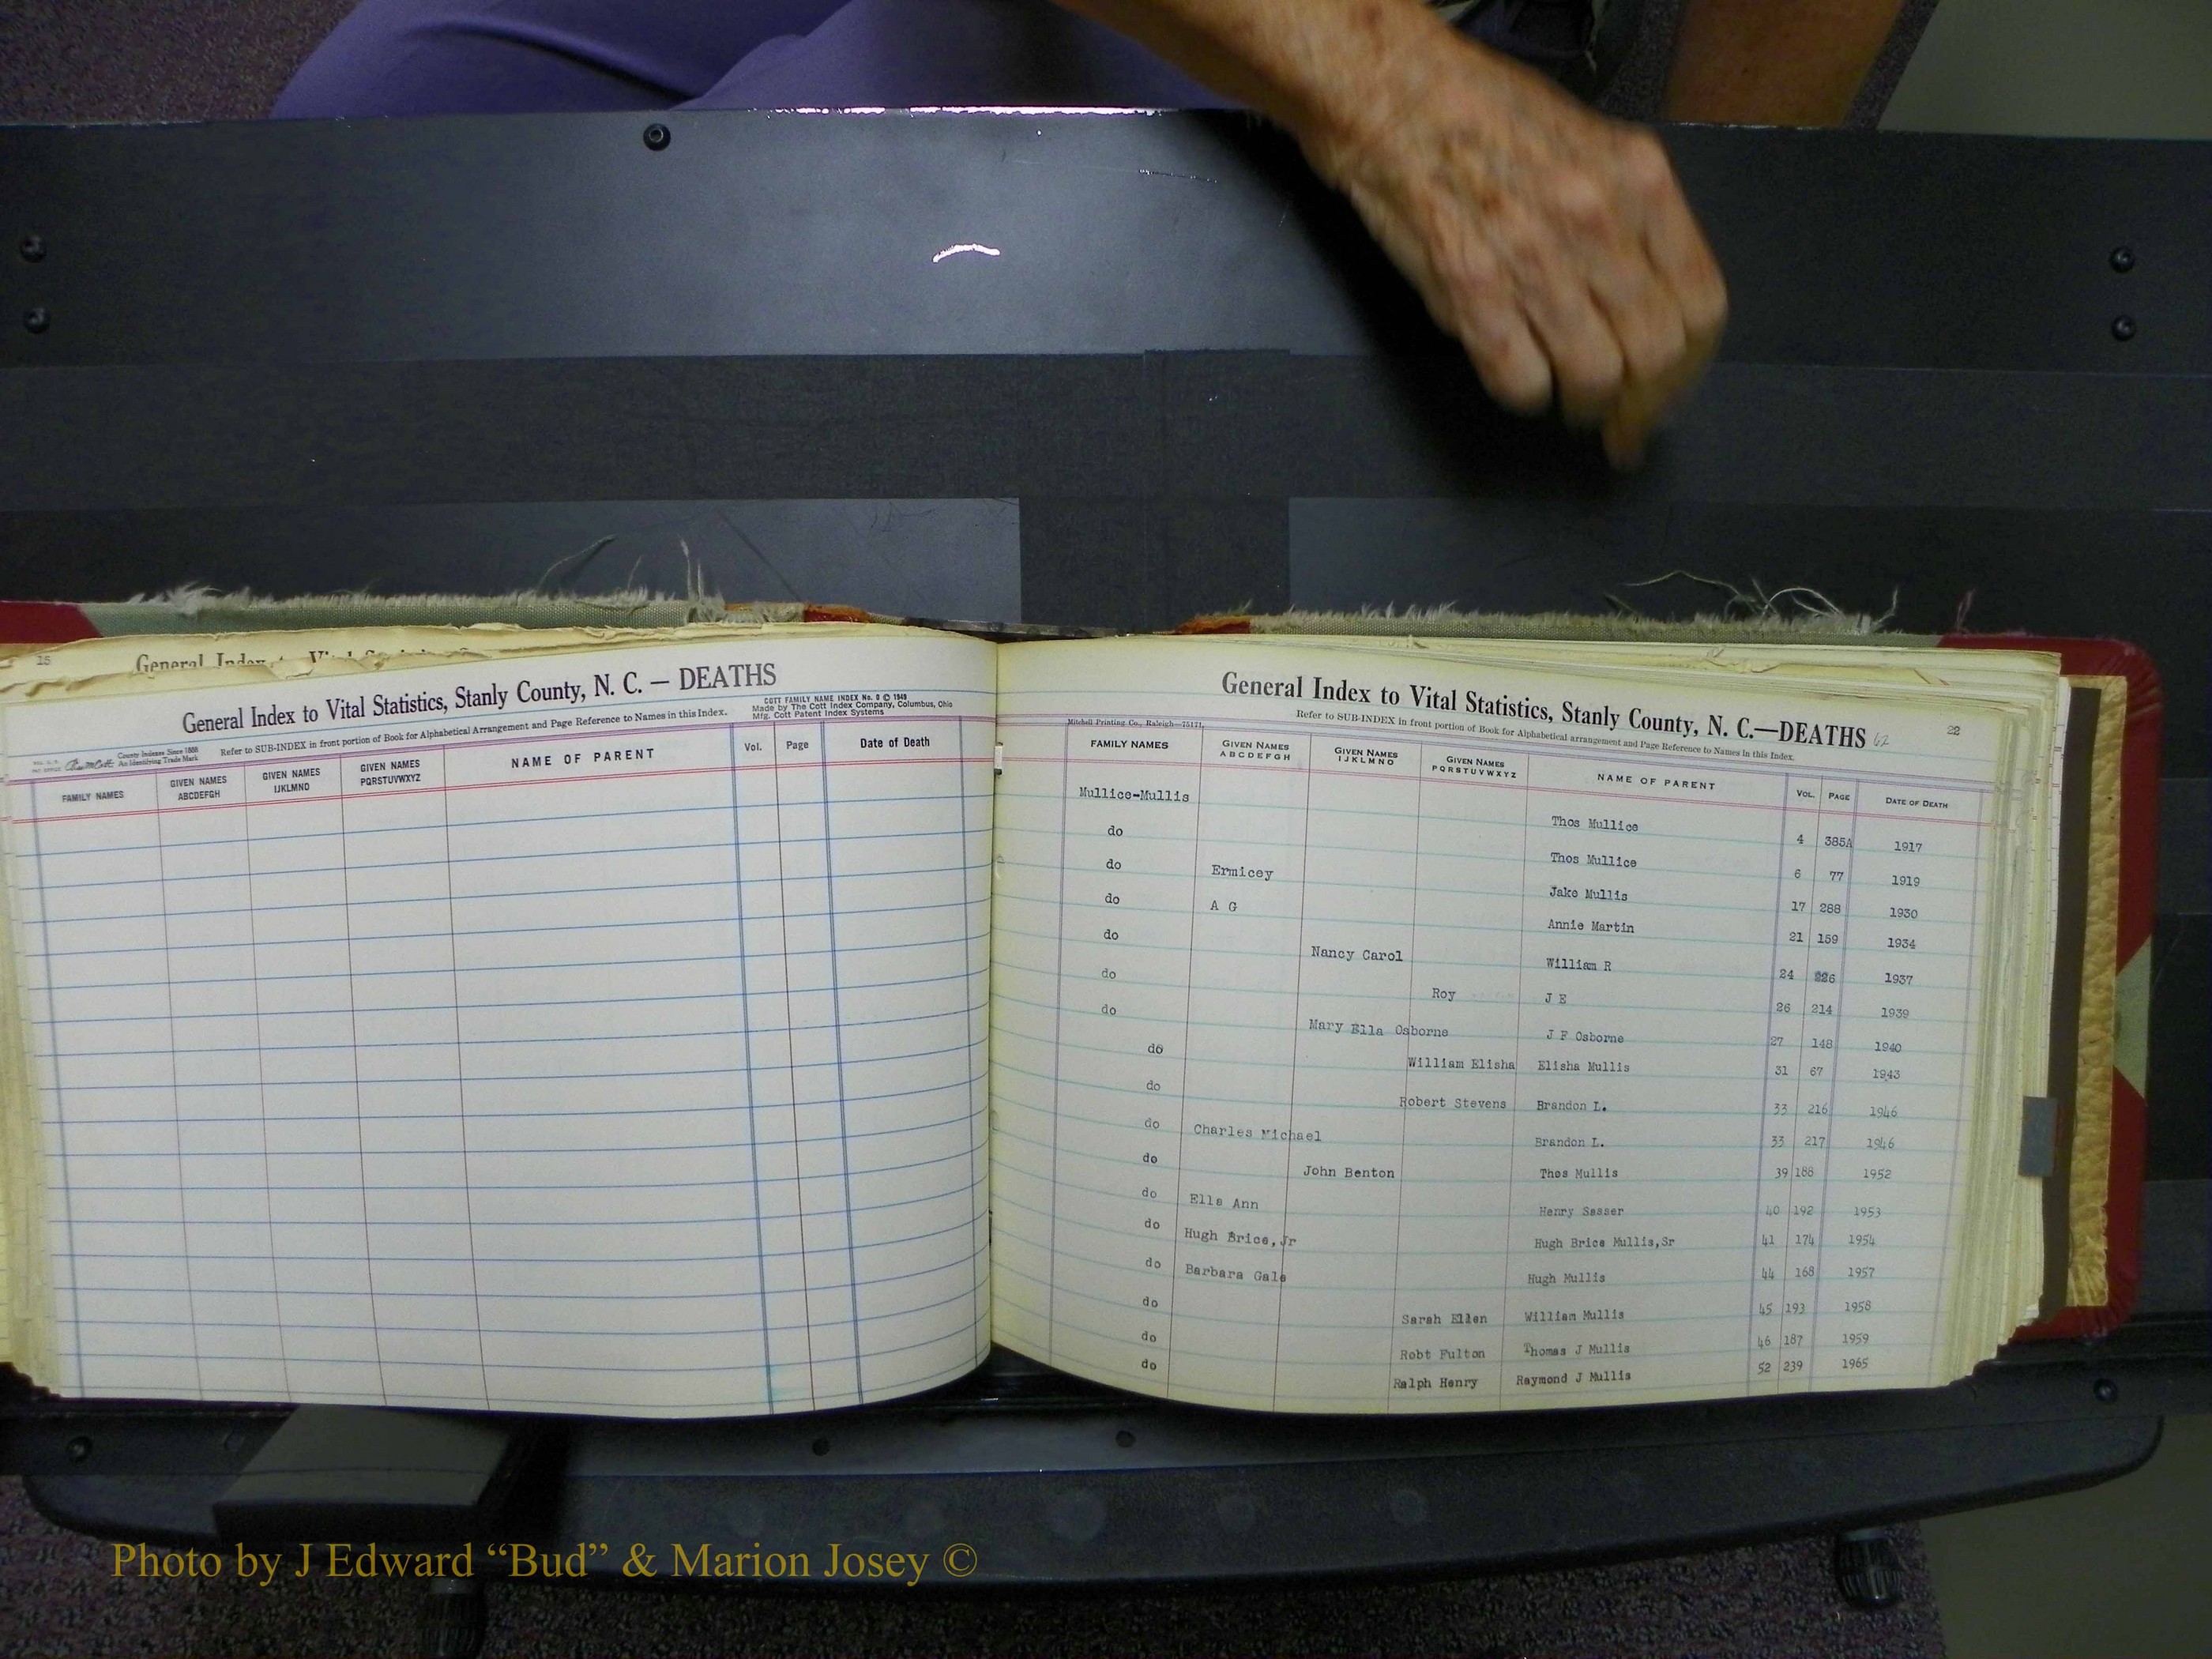 15
General Index to Vital Statistics, Stanly County, N. C. — DEATHS
COTT FAMILY NAME INDEX No. 0 © 1949
Made by The Cott Index Company, Columbus, Ohio
Mfg. Cott Patent Index Systems
County Indexes Since 1888
An Identifying Trade Mark
Refer to SUB-INDEX in front portion of Book for Alphabetical Arrangement and Page Reference to Names in this Index.
FAMILY NAMES GIVEN NAMES ABCDEFGH GIVEN NAMES IJKLMNO GIVEN NAMES PQRSTUVWXYZ NAME OF PARENT Vol. Page Date of Death
General Index to Vital Statistics, Stanly County, N. C.—DEATHS 62 22
Mitchell Printing Co., Raleigh—75171,
Refer to SUB-INDEX in front portion of Book for Alphabetical arrangement and Page Reference to Names in this Index.
FAMILY NAMES GIVEN NAMES ABCDEFGH GIVEN NAMES IJKLMNO GIVEN NAMES PQRSTUVWXYZ NAME OF PARENT VOL. PAGE DATE OF DEATH
Mullice-Mullis Thos Mullice 4 385A 1917
do Thos Mullice 6 77 1919
do Ermicey Jake Mullis 17 288 1930
do A G Annie Martin 21 159 1934
do Nancy Carol William R 24 226 1937
do Roy J E 26 214 1939
do Mary Ella Osborne J F Osborne 27 148 1940
do William Elisha Elisha Mullis 31 67 1943
do Robert Stevens Brandon L. 33 216 1946
do Charles Michael Brandon L. 33 217 1946
do John Benton Thos Mullis 39 188 1952
do Ella Ann Henry Sasser 40 192 1953
do Hugh Brice,Jr Hugh Brice Mullis,Sr 41 174 1954
do Barbara Gale Hugh Mullis 44 168 1957
do Sarah Ellen William Mullis 45 193 1958
do Robt Fulton Thomas J Mullis 46 187 1959
do Ralph Henry Raymond J Mullis 52 239 1965
Photo by J Edward “Bud” & Marion Josey ©